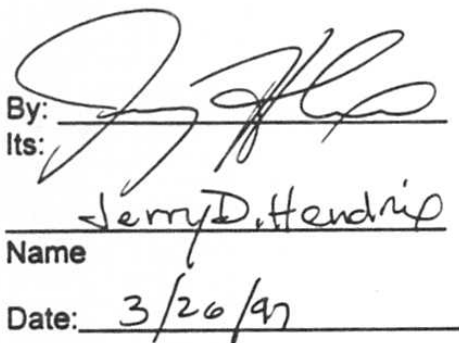 By:
Its:
Jerry D. Hendrix
Name
Date: 3/26/97